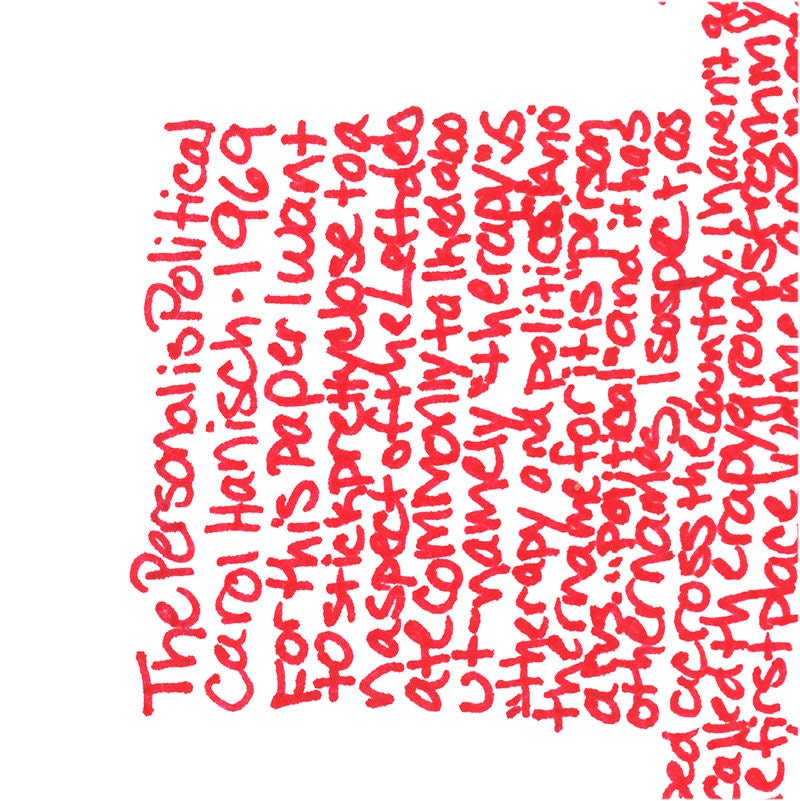 The Personal is Political
Carol Hanisch. 1969
For this paper I want
to stick pretty close to a
n aspect of the Left deb
ate commonly talked abo
ut-namely "therapy" vs.
"therapy and politics. Ano
ther name for it is "person
al" vs. "political" and it has
other names, I suspect, as
ped across the country. I haven't g
called therapy groups
e first place